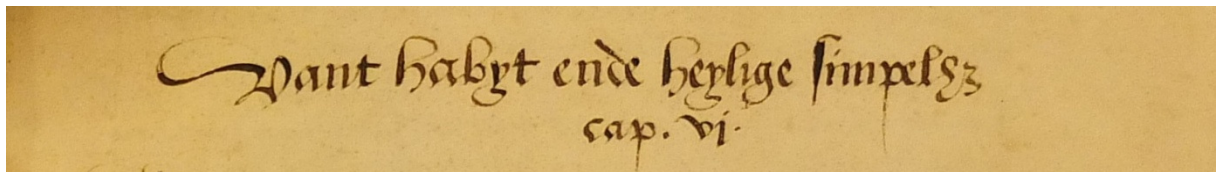 Vant habyt ende heylige simpelhz
cap. vj.